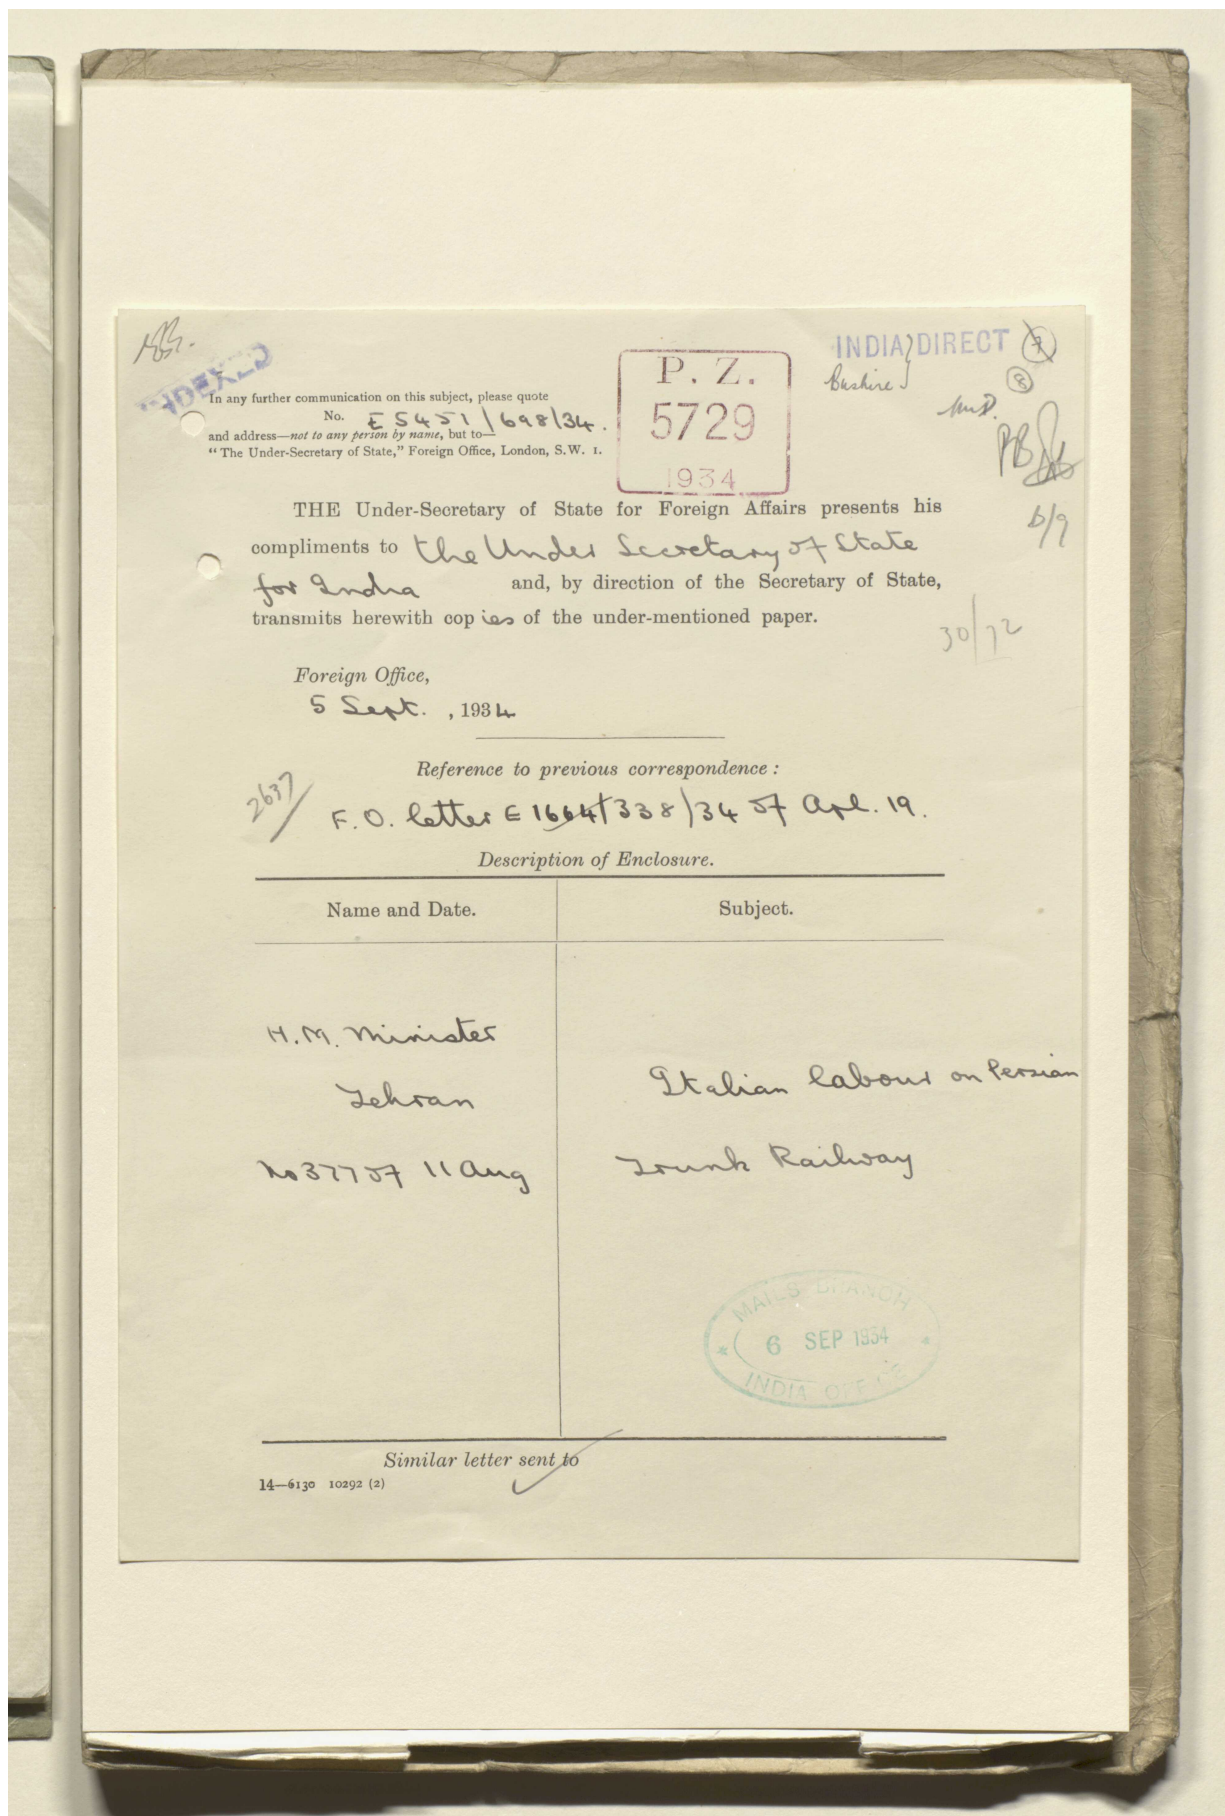 INDEXED
INDIA DIRECT
Bushire
P. Z.
5729
1934
In any further communication on this subject, please quote
No. E 5451/698/34.
and address—not to any person by name, but to—
"The Under-Secretary of State," Foreign Office, London, S.W. 1.
THE Under-Secretary of State for Foreign Affairs presents his
compliments to the Under Secretary of State
for India and, by direction of the Secretary of State,
transmits herewith copies of the under-mentioned paper.
30/72
Foreign Office,
5 Sept. , 1934
Reference to previous correspondence :
2637
F.O. letter E 1664/338/34 of Apl. 19.
Description of Enclosure.
Name and Date.
Subject.
H.M. Minister
Tehran
No 377 of 11 Aug
Italian labour on Persian
Trunk Railway
MAILS BRANCH
6 SEP 1934
INDIA OFFICE
Similar letter sent to
14—6130 10292 (2)